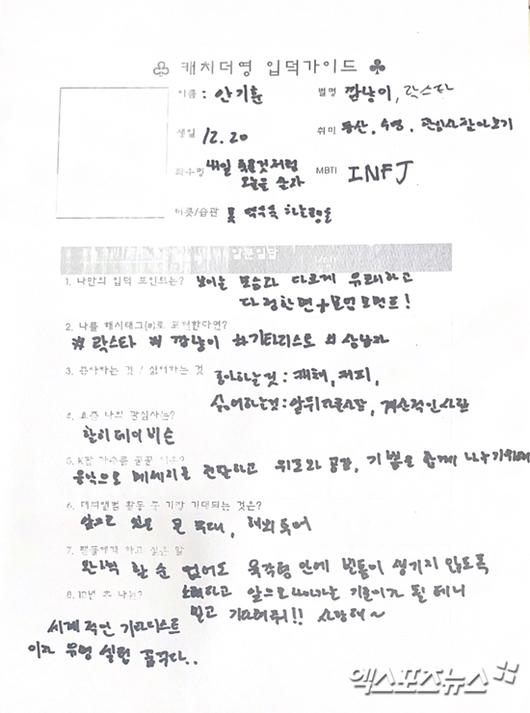 ♧ 캐치더영 입덕가이드 ♣
이름 : 안기훈 별명 깜냥이, 락스타
생일 12.20 취미 등산, 수영,
좌우명 내일 죽을것처럼 MBTI INFJ
오늘을 살자
버릇/습관 목
1. 나만의 입덕 포인트는? 보이는 모습과 다르게 유쾌하고
다정한면+모먼트!
2. 나를 해시태그(#)로 표현한다면?
#락스타 #깜냥이 #기타리스트 #상남자
3. 좋아하는 것 / 싫어하는 것 좋아하는것: 커피,
싫어하는것: 계산적인사람
4. 요즘 나의 관심사는?
할리데이비슨
5. K팝 가수를 꿈꾼 이유?
음악으로 메세지를 전달하고 위로와 공감, 기쁨을 함께 나누기위해
6. 데뷔앨범 활동 중 가장 기대되는 것은?
앞으로 있을 큰 무대, 해외투어
7. 팬들에게 하고 싶은 말
완벽 할 순 없어도 육각형 안에 빈틈이 생기지 않도록
8. 10년 후 나는? 노력하고 앞으로 나아가는 기훈이가 될 테니
믿고 기대해줘!! 사랑해~
세계적인 기타리스트
이자 유명 꿈꾸다..
엑스포츠뉴스